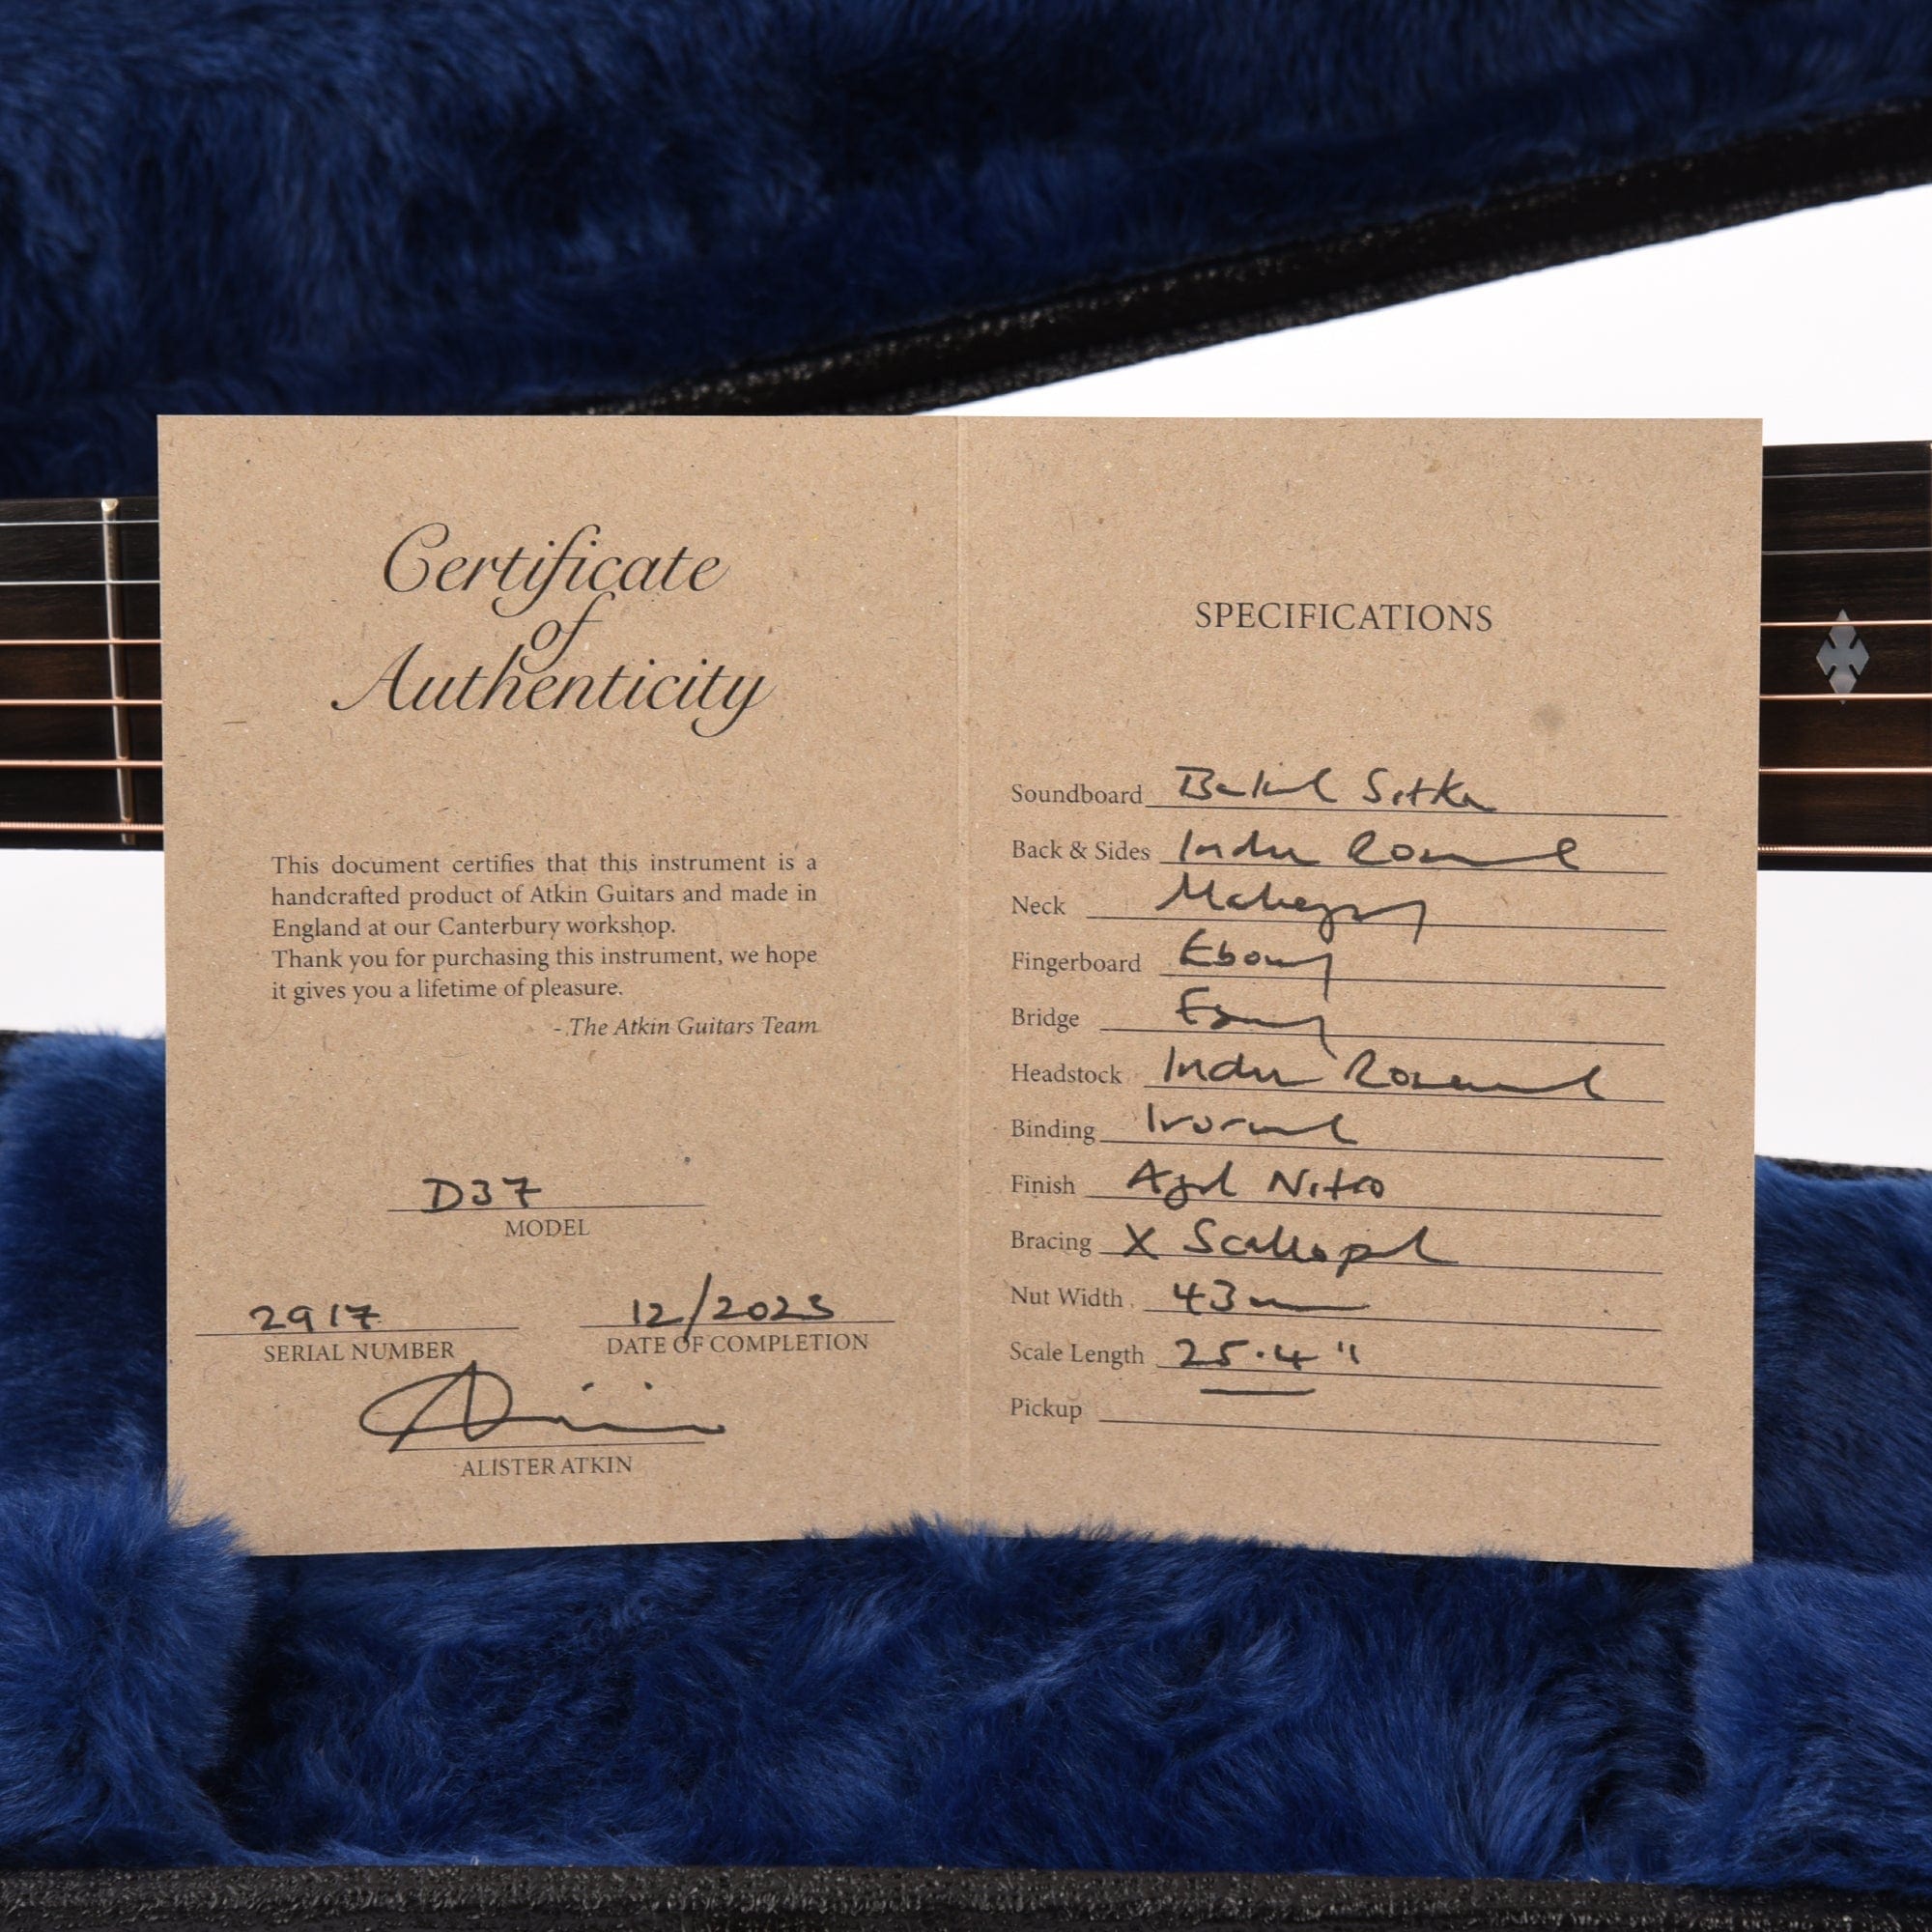 Certificate
of
Authenticity
This document certifies that this instrument is a
handcrafted product of Atkin Guitars and made in
England at our Canterbury workshop.
Thank you for purchasing this instrument, we hope
it gives you a lifetime of pleasure.
- The Atkin Guitars Team
D37
MODEL
2917
SERIAL NUMBER
12/2023
DATE OF COMPLETION
ALISTER ATKIN
SPECIFICATIONS
Soundboard Baked Sitka
Back & Sides Indian Rosewood
Neck Mahogany
Fingerboard Ebony
Bridge Ebony
Headstock Indian Rosewood
Binding Ivoroid
Finish Aged Nitro
Bracing X Scalloped
Nut Width 43mm
Scale Length 25.4"
Pickup